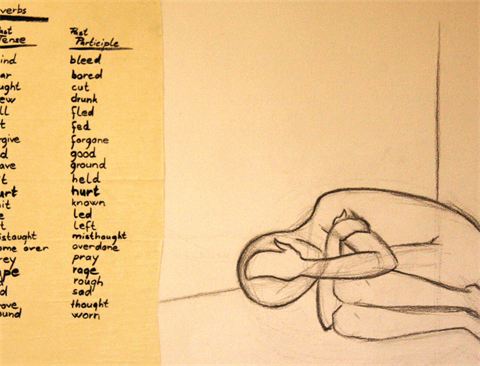 verbs
Past
Tense Participle
ind bleed
ar bored
ught cut
ew drunk
ll fled
t fed
rgive forgone
d good
ave ground
t held
urt hurt
it known
e led
t left
istaught misthought
ome over overdone
rey pray
ape rage
rough
d sad
ove thought
ound worn